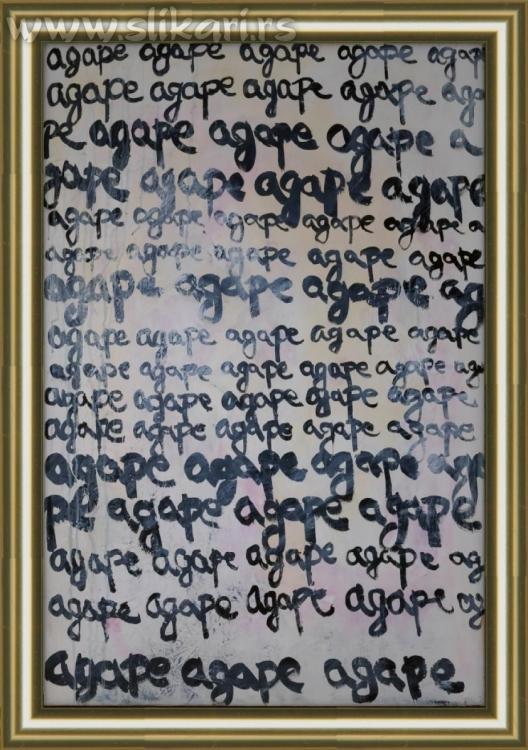 www.slikari.rs
agape agape agape agape agap
agape agape agape agape ag
pe agape agape agape a
gape agape agape agape
agape agape agape agape agape a
agape agape agape agape agape
agape agape agape ag
agape agape agape agape agape
agape agape agape agape agape ag
agape agape agape agape agape
agape agape agape agape agape
agape agape agape agp
pe agape agape agape
agape agape agape agape ag
agape agape agape agape ag
agape agape agape.